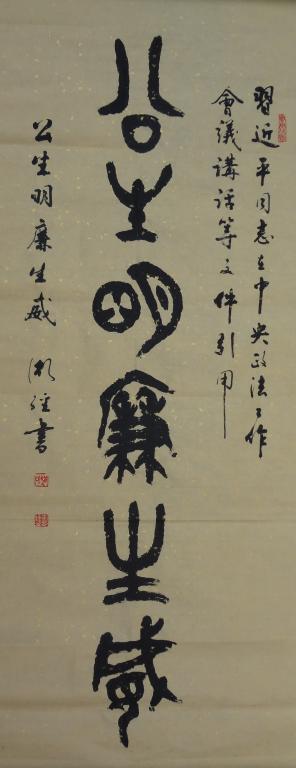 習近平同志在中央政法工作
會議講話等文件引用
公生明廉生威
公生明廉生威 書